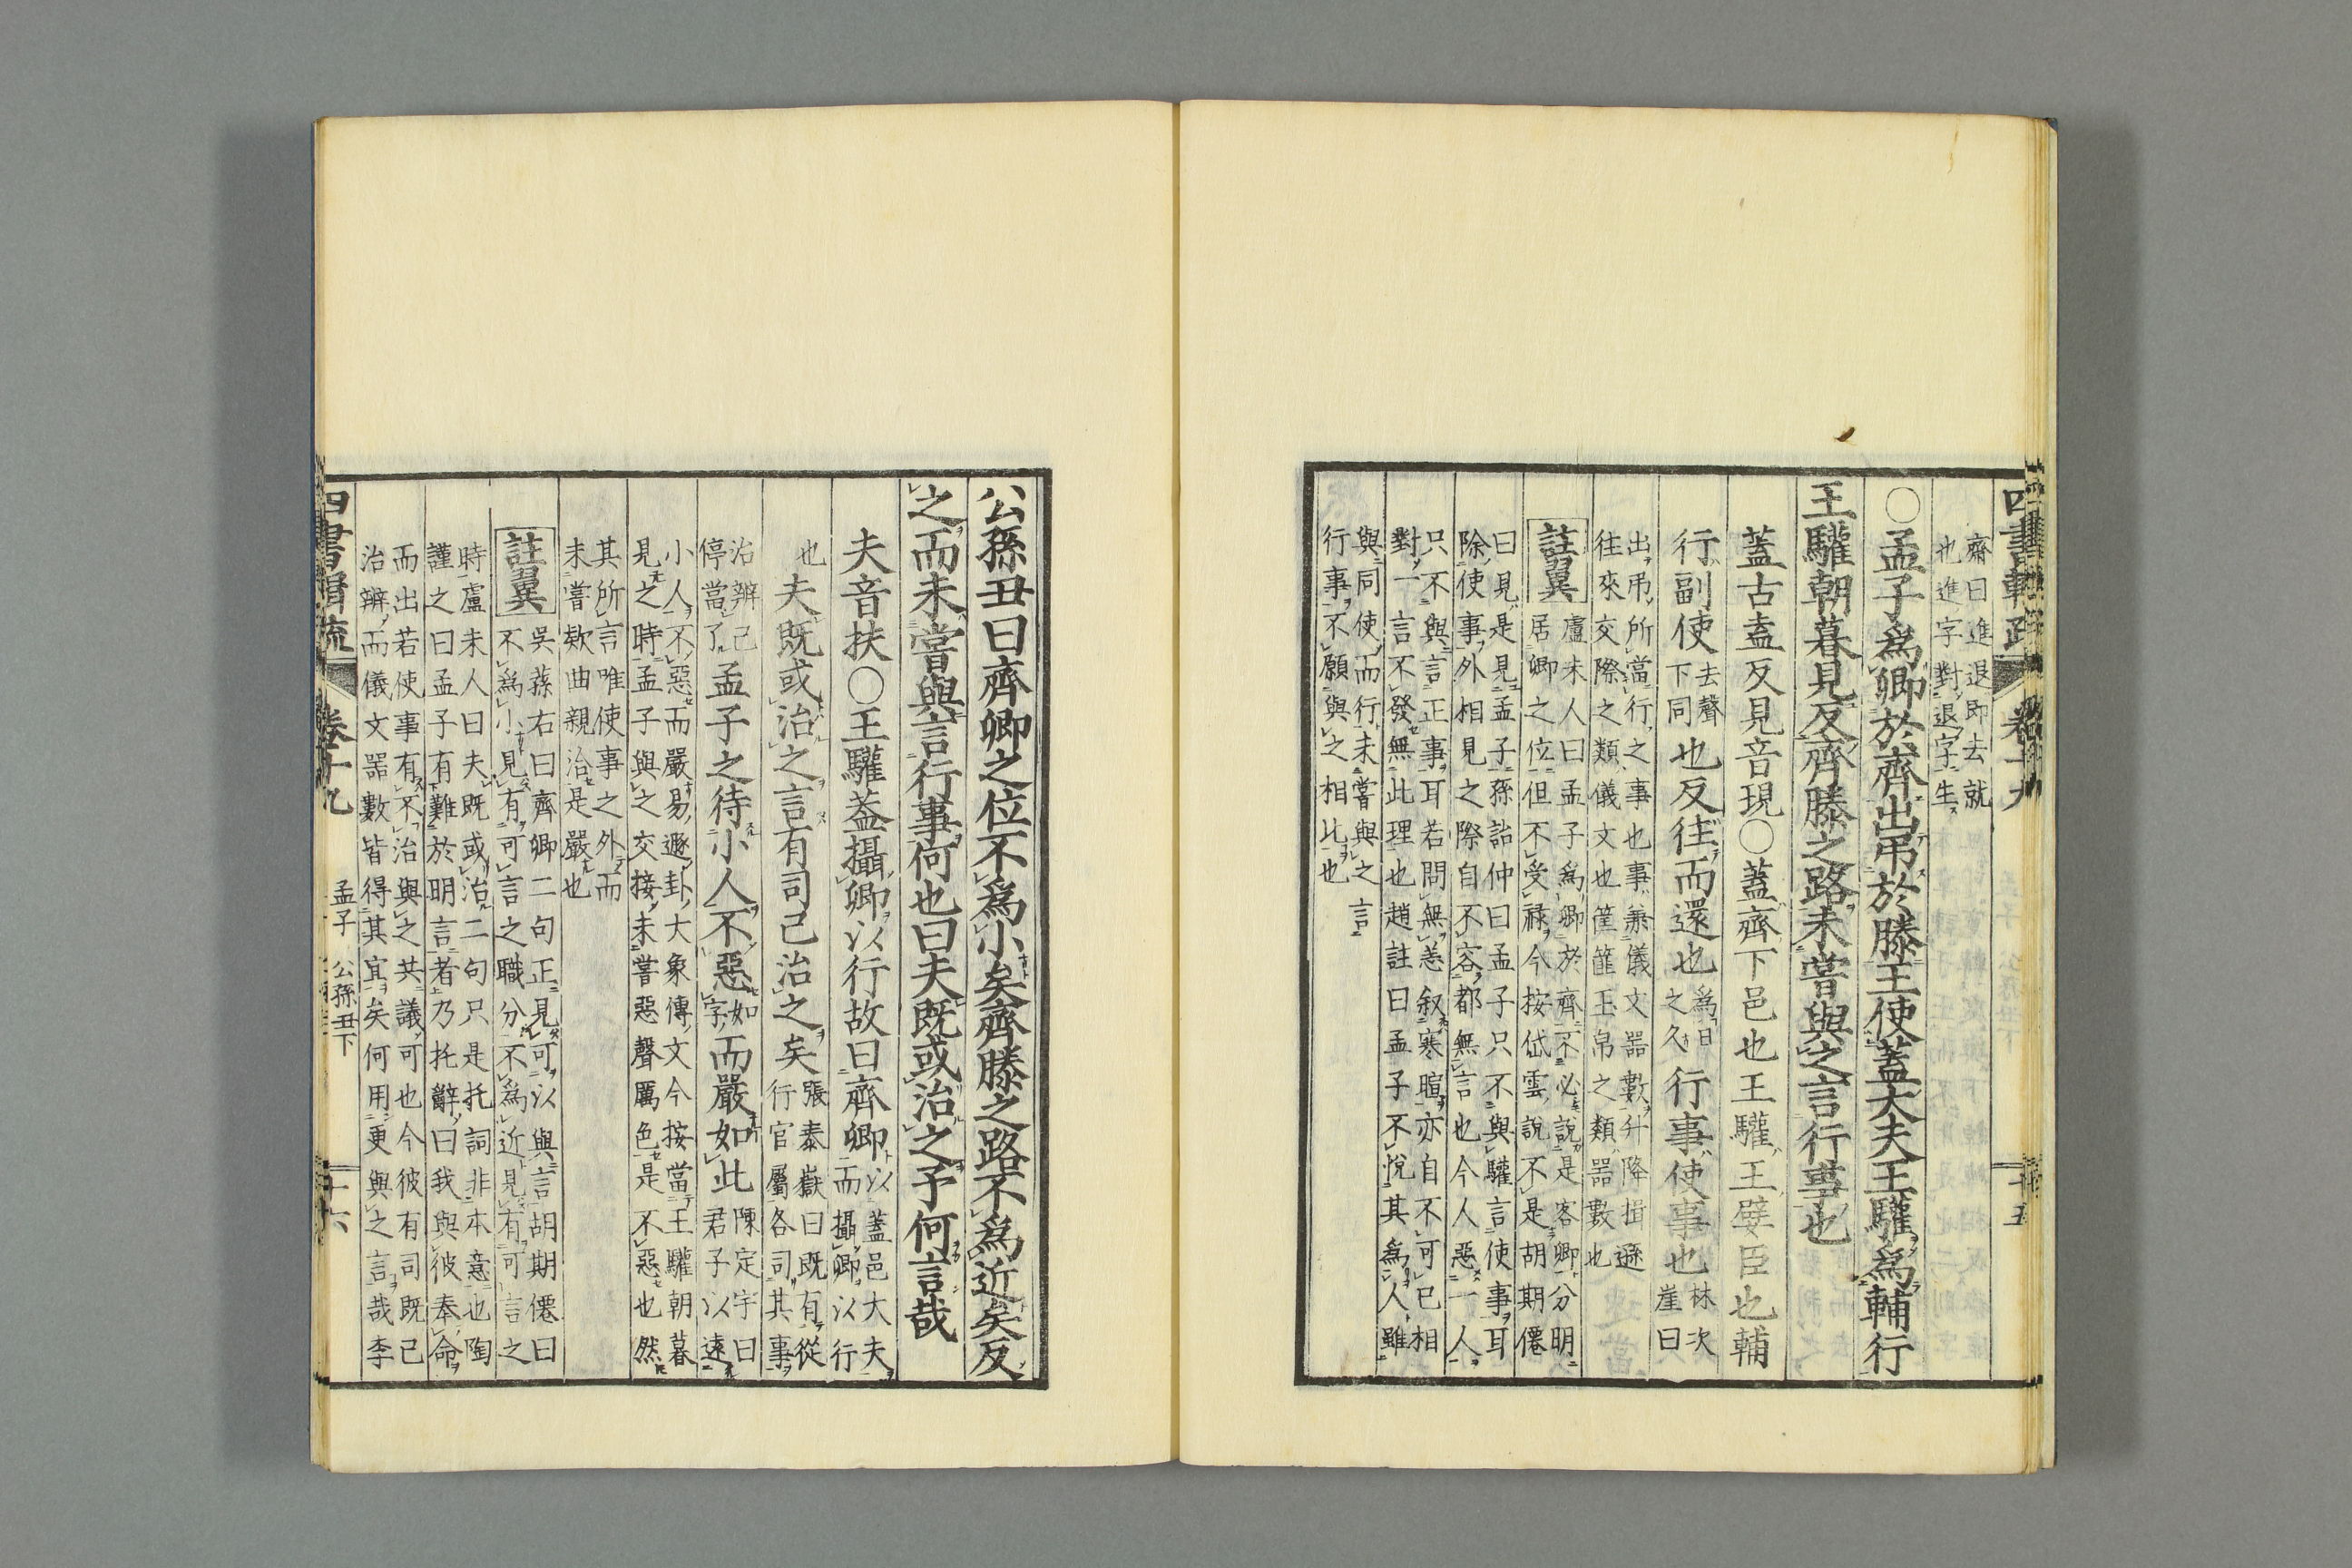 齋曰進退即去就
也進字對退字生
○孟子為卿於齊出弔於滕王使蓋大夫王驩為輔行
王驩朝暮見反齊滕之路未嘗與之言行事也
蓋古盍反見音現○蓋齊下邑也王驩王嬖臣也輔
行副使去聲
下同也反往而還也為日
之久行事使事也林次
崖曰
出弔所當行之事也事兼儀文器數升降揖遜
往來交際之類儀文也筐篚玉帛之類器數也
註翼
盧未人曰孟子為卿於齊不必說是客卿分明
居卿之位但不受祿今按岱雲說不是胡期僊
曰見是見孟子孫詒仲曰孟子只不與驩言使事耳
除使事外相見之際自不容都無言也今人惡一人
只不與言正事耳若問無恙叙寒暄亦自不可已相
對一言不發無此理也趙註曰孟子不悅其為人雖
與同使而行未嘗與之言
行事不願與之相比也
四書輯疏 卷十九 二十五
公孫丑曰齊卿之位不為小矣齊滕之路不為近矣反
之而未嘗與言行事何也曰夫既或治之予何言哉
夫音扶○王驩蓋攝卿以行故曰齊卿以蓋邑大夫
而攝卿以行
也夫既或治之言有司已治之矣張泰嶽曰既有從
行官屬各司其事
治辦已
停當了孟子之待小人不惡如
字而嚴如此陳定宇曰
君子以遠
小人不惡而嚴易遯卦大象傳文今按當王驩朝暮
見之時孟子與之交接未嘗惡聲厲色是不惡也然
其所言唯使事之外而
未嘗欵曲親治是嚴也
註翼
吳蓀右曰齊卿二句正見可以與言胡期僊曰
不為小見有可言之職分不為近見有可言之
時盧未人曰夫既或治二句只是托詞非本意也陶
謹之曰孟子有難於明言者乃托辭曰我與彼奉命
而出若使事有不治與之共議可也今彼有司既已
治辦而儀文器數皆得其宜矣何用更與之言哉李
四書輯疏 卷十九 孟子 公孫丑下 二十六